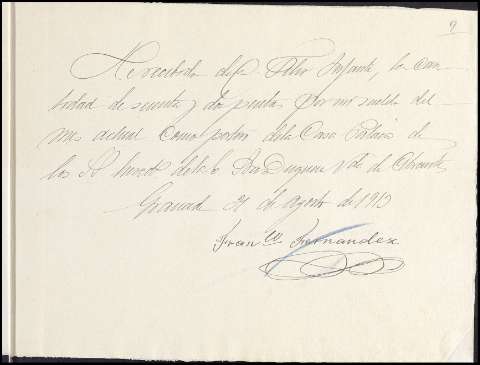 9
He recibido de D. Felix Infante, la can-
tidad de sesenta y dos pesetas por mi sueldo del
mes actual como portero de la Casa Palacio de
los de la Duquesa de
Granada 31 de Agosto de 1913
Fran.co Fernandez